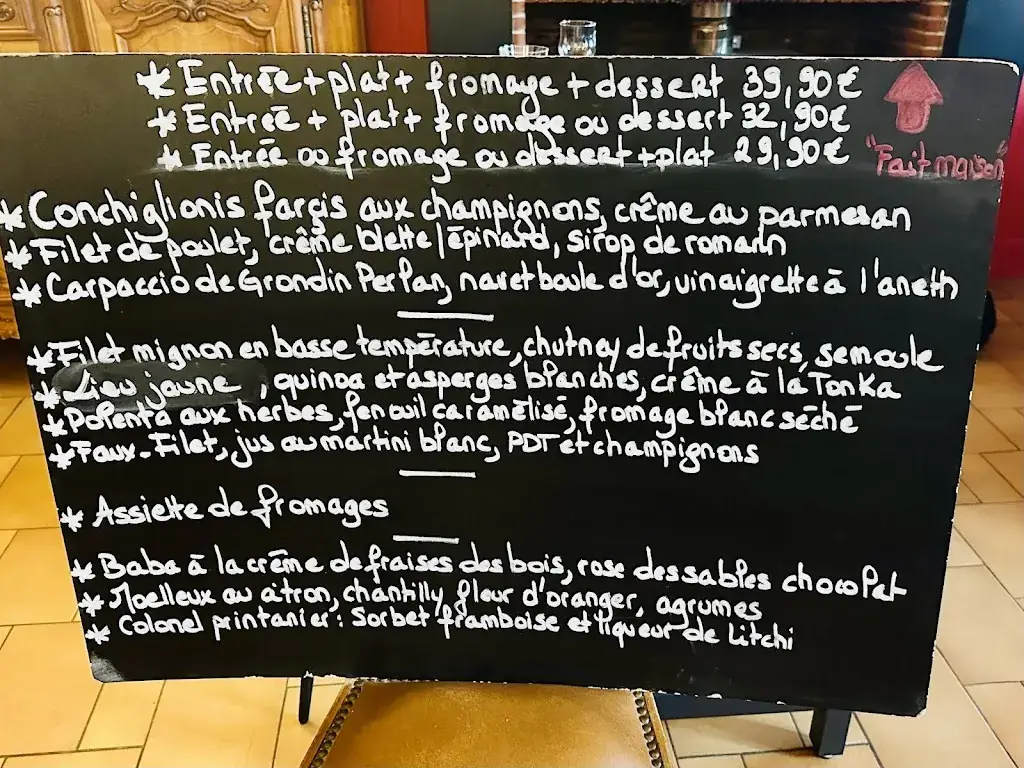 * Entrée + plat + fromage + dessert 39,90 €
* Entrée + plat + fromage ou dessert 32,90 €
* Entrée ou fromage ou dessert + plat 29,90 €
"Fait maison"
* Conchiglionis farçis aux champignons, crême au parmesan
* Filet de poulet, crême blette / épinard, sirop de romarin
* Carpaccio de Grondin Perlan, navet boule d'or, vinaigrette à l'aneth
* Filet mignon en basse température, chutney de fruits secs, semoule
* Lieu jaune, quinoa et asperges blanches, crême à la Tonka
* Polenta aux herbes, fenouil caramélisé, fromage blanc séché
* Faux-Filet, jus au martini blanc, PDT et champignons
* Assiette de fromages
* Baba à la crême de fraises des bois, rose des sables chocolat
* Moelleux au citron, chantilly fleur d'oranger, agrumes
* Colonel printanier : Sorbet framboise et liqueur de Litchi